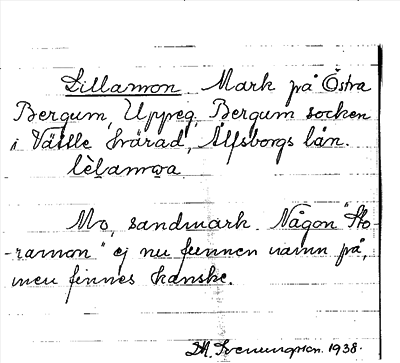 Lillamon Mark på Östra
Bergum, Uppeg, Bergum socken
i Vättle härad, Älfsborgs län.
lèlamωa
Mo, sandmark. Någon "Sto-
-ramon" ej nu funnen namn på,
men finnes kanske.
D.A. Svenungsson. 1938.